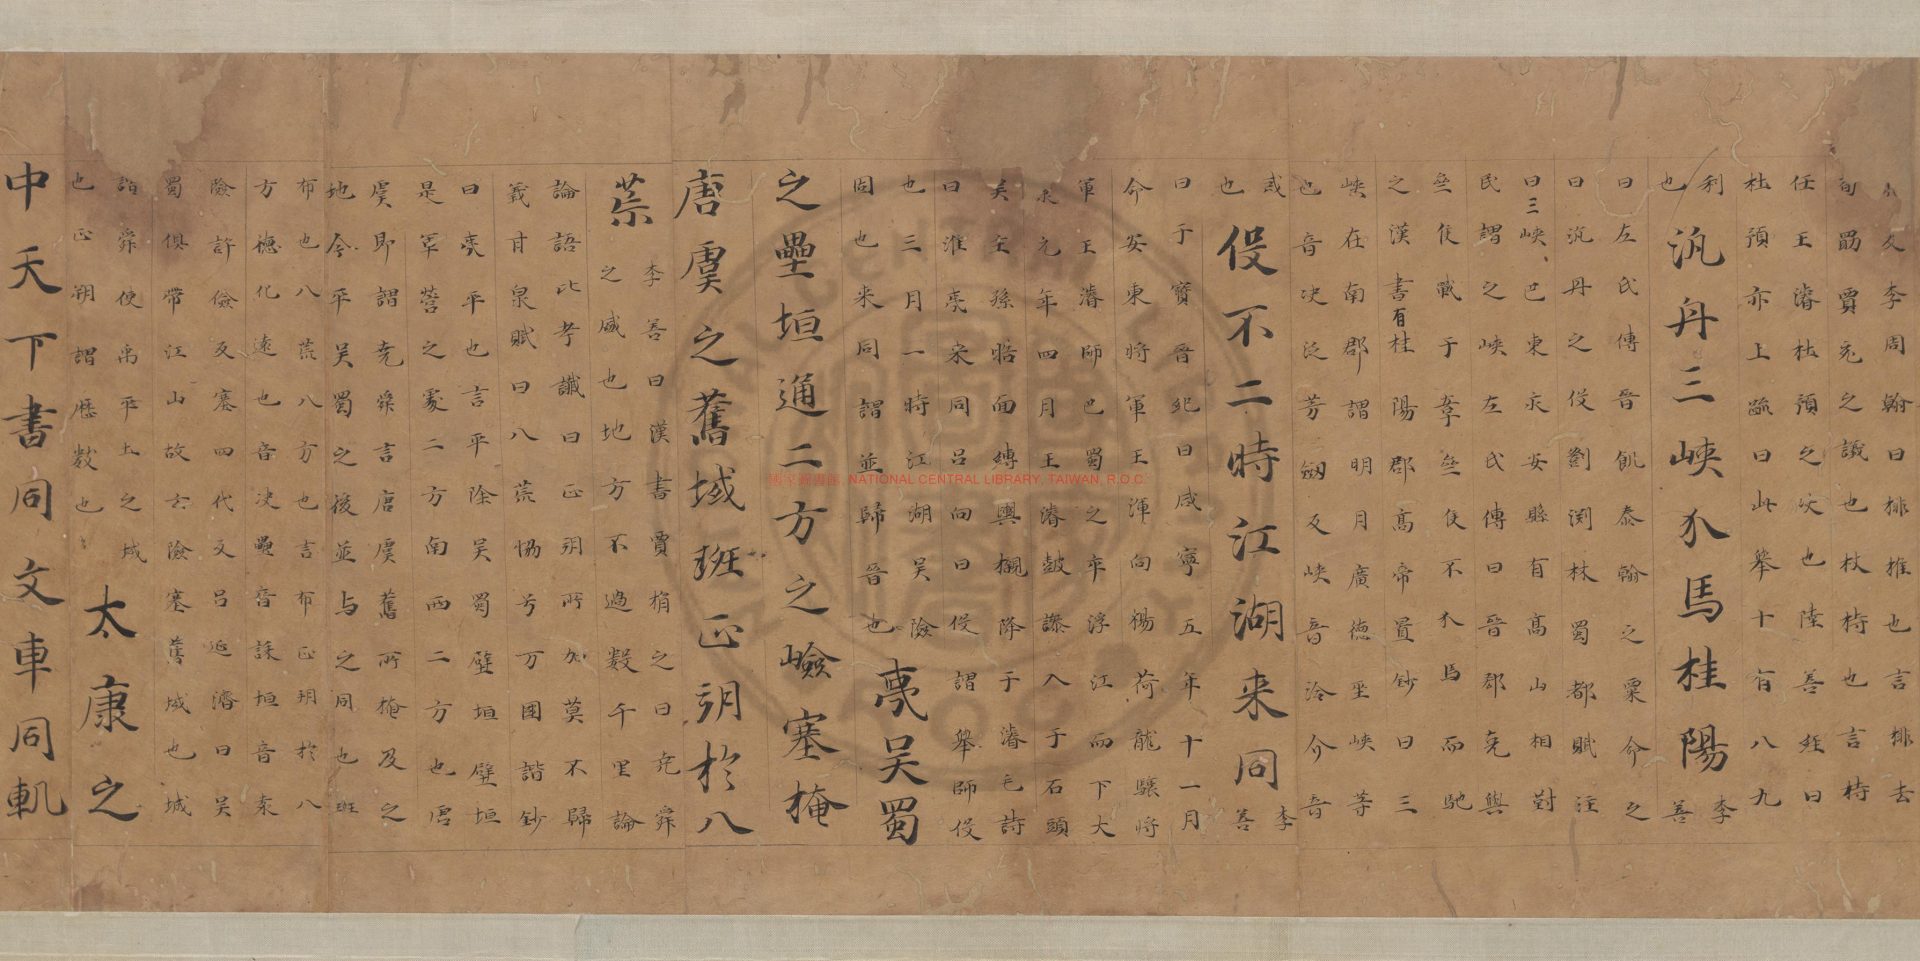 久李周翰曰排推也言排去
旬勖賈充之議也杖持也言持
任王濬杜預之决也陸善經曰
杜預亦上䟽曰此舉十有八九
利
也 汎舟三峽介馬桂陽 李善
曰左氏傳晉飢秦輸之粟命之
曰汎舟之役劉渕林蜀都賦注
曰三峽、巴東永安縣有高山相對
民謂之峽左氏傳曰晉郄克與
齊侯戰于鞌齊侯不介馬而馳
之漢書有桂陽郡高帝置鈔曰三
峽在南郡謂明月廣德峽等
也音决泛芳劒反峽音洽介音
戒
也 役不二時江湖来同 李善
曰于寶晉紀曰咸寧五年十一月
命安東將軍王渾向楊荷龍驤將
軍王濬師巴蜀之卒浮江而下大
永元年四月王濬鼓譟入于石頭
吴主孫晧面縛輿櫬降于濬毛詩
曰淮夷来同呂向曰役謂舉師役
也三月一時江湖吴險
固也来同謂並歸晉也 夷吴蜀
之壘垣通二方之嶮塞掩
唐虞之舊域班正朔於八
荒 李善曰漢書賈捐之曰堯舜
之盛也地方不過數千里論
論語比考讖曰正朔所加莫不歸
義甘泉賦曰八荒恊兮万國諧鈔
曰夷平也言平除吴蜀壁垣壁垣
是軍營之裏二方南西二方也唐
虞即謂堯舜言唐虞舊所掩及之
地今平吴蜀之後並与之同也班
布也八荒八方也言布正朔於八
方德化遠也音决壘音誄垣音袁
險許儉反塞四代反呂延濟曰吴
蜀俱帶江山故云險塞舊域也域
謂舜使禹平土之域
也正朔謂歷數也 太康之
中天下書同文車同軌
國家圖書館 NATIONAL CENTRAL LIBRARY, TAIWAN R.O.C.